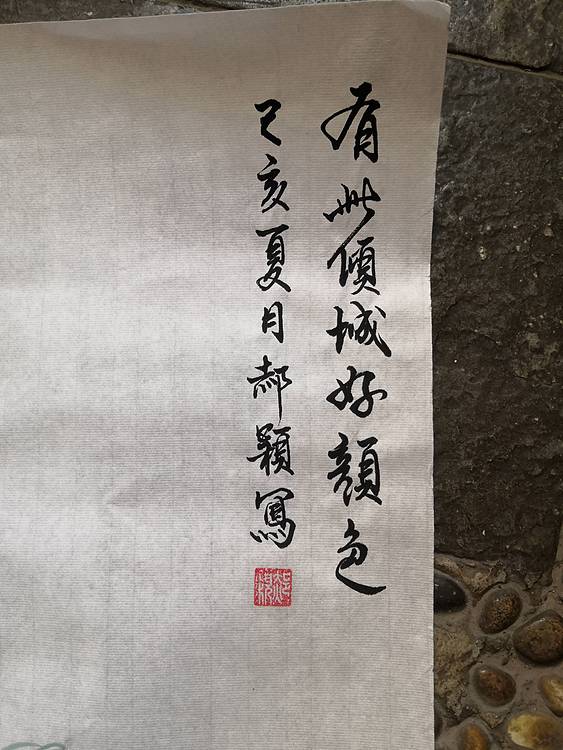 有此傾城好顔色
己亥夏月郝穎寫